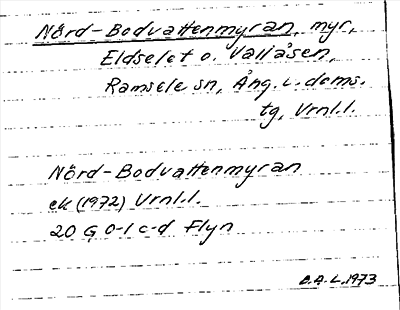 Nörd-Bodvattenmyran, myr,
Eldselet o. Vallåsen,
Ramsele sn, Ång. l. doms.
tg, Vrnl.l.
Nörd-Bodvattenmyran
ek (1972) Vrnl.l.
20 G 0-1 c-d Flyn
B.A.L. 1973